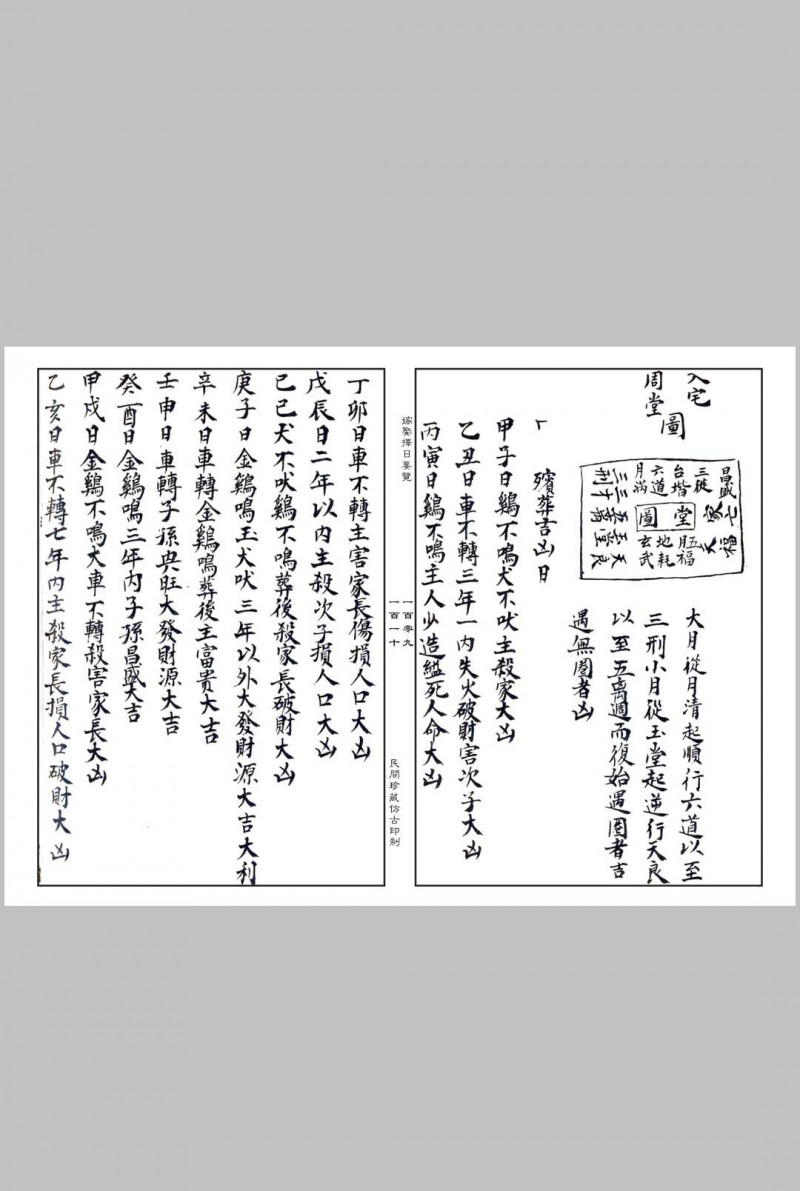 入宅
周堂
圖
昌盛
三從
台堦
六道
月滿
堂
圖
伍福
地耗
玄武
大月從月清起順行六道以至
三刑小月從玉堂起逆行天良
以至五离週而復始遇圈者吉
遇無圈者凶
殯葬吉凶日
甲子日鷄不鳴犬不吠主殺家大凶
乙丑日車不轉三年一內失火破財害次子大凶
丙寅日鷄不鳴主人少造縊死人命大凶
嫁娶擇日要覽
一百零九
一百一十
民間珍藏仿古印制
丁卯日車不轉主害家長傷損人口大凶
戊辰日二年以內主殺次子損人口大凶
己巳犬不吠鷄不鳴葬後殺家長破財大凶
庚子日金鷄鳴玉犬吠三年以外大發財源大吉大利
辛未日車轉金鷄鳴葬後主富贵大吉
壬申日車轉子孫興旺大發財源大吉
癸酉日金鷄鳴三年內子孫昌盛大吉
甲戍日金鷄不鳴犬車不轉殺害家長大凶
乙亥日車不轉七年內主殺家長損人口破財大凶